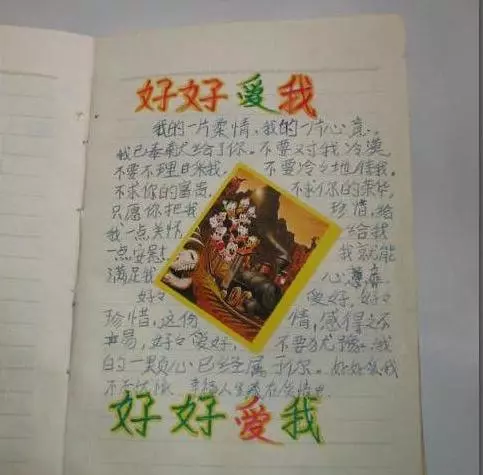 好好爱我
我的一片柔情,我的一片心意。
我已奉献给了你。不要对我冷漠
不要不理日采我。不要冷々地佳我。
不求你的富贵,不求你的荣华,
只愿你把我珍惜,给
我一点关怀给我
一点安慰我就能
满足我心意
好々爱好,好々
珍惜,这份情,感得之不
易,好々爱好,不要犹豫。我
的一颗心已经属了你。好好爱我
不
好好爱我